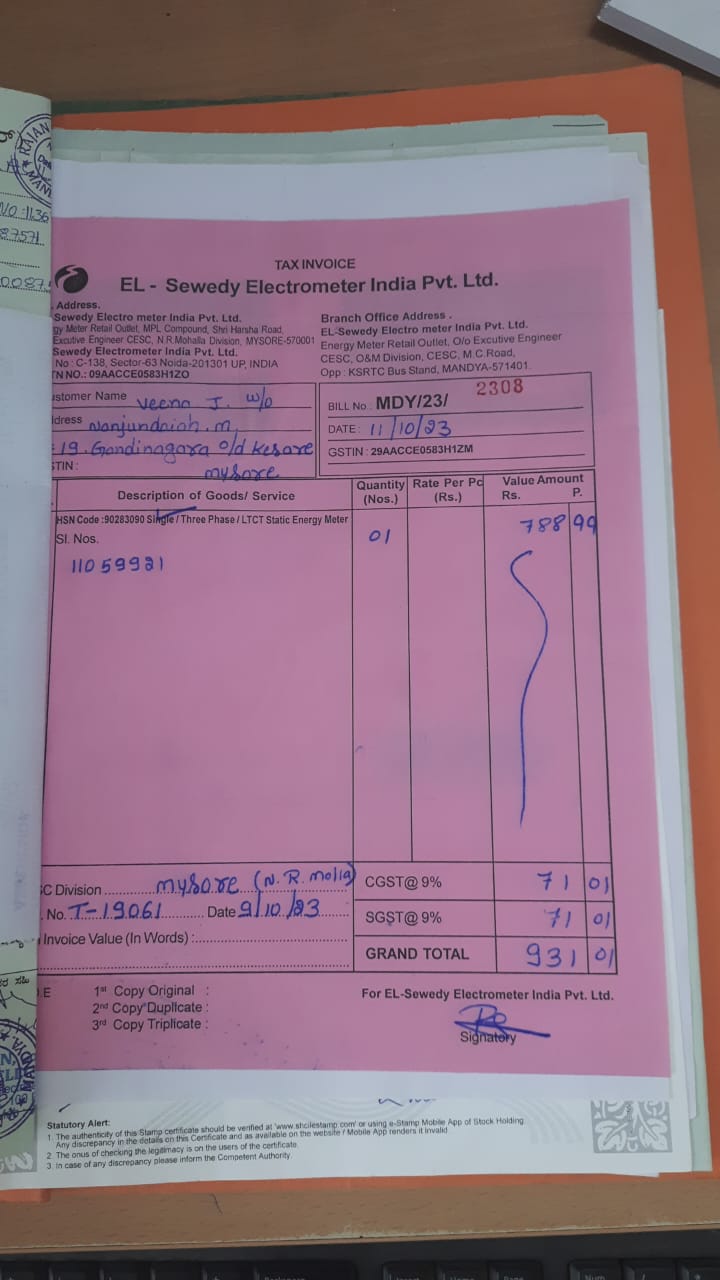 NO :1136
87571
0087
TAX INVOICE
EL - Sewedy Electrometer India Pvt. Ltd.
Address.
Sewedy Electro meter India Pvt. Ltd.
gy Meter Retail Outlet, MPL Compound, Shri Harsha Road,
Excutive Engineer CESC, N.R.Mohalla Division, MYSORE-570001
Sewedy Electrometer India Pvt. Ltd.
No : C-138, Sector-63 Noida-201301 UP, INDIA
TN NO.: 09AACCE0583H1ZO
Branch Office Address .
EL-Sewedy Electro meter India Pvt. Ltd.
Energy Meter Retail Outlet, O/o Excutive Engineer
CESC, O&M Division, CESC, M.C.Road,
Opp : KSRTC Bus Stand, MANDYA-571401.
ustomer Name Veena J. w/o
ddress Nanjundaiah. M,
19. Gandinagara o/d Kesare
STIN: mysore
BILL No : MDY/23/ 2308
DATE : 11/10/23
GSTIN : 29AACCE0583H1ZM
Description of Goods/ Service
Quantity (Nos.)
Rate Per Pc (Rs.)
Value Amount
Rs. P.
HSN Code :90283090 Single / Three Phase / LTCT Static Energy Meter
Sl. Nos.
01
788 99
11059921
C Division mysore (N. R. Molla)
CGST@ 9% 71 01
No. T-19061 Date 9/10/23
SGST@ 9% 71 01
Invoice Value (In Words) :
GRAND TOTAL 931 01
E 1st Copy Original :
2nd Copy Duplicate :
3rd Copy Triplicate :
For EL-Sewedy Electrometer India Pvt. Ltd.
Signatory
Statutory Alert:
1. The authenticity of this Stamp certificate should be verified at 'www.shcilestamp.com' or using e-Stamp Mobile App of Stock Holding
Any discrepancy in the details on this Certificate and as available on the website / Mobile App renders it invalid
2. The onus of checking the legitimacy is on the users of the certificate.
3. In case of any discrepancy please inform the Competent Authority.